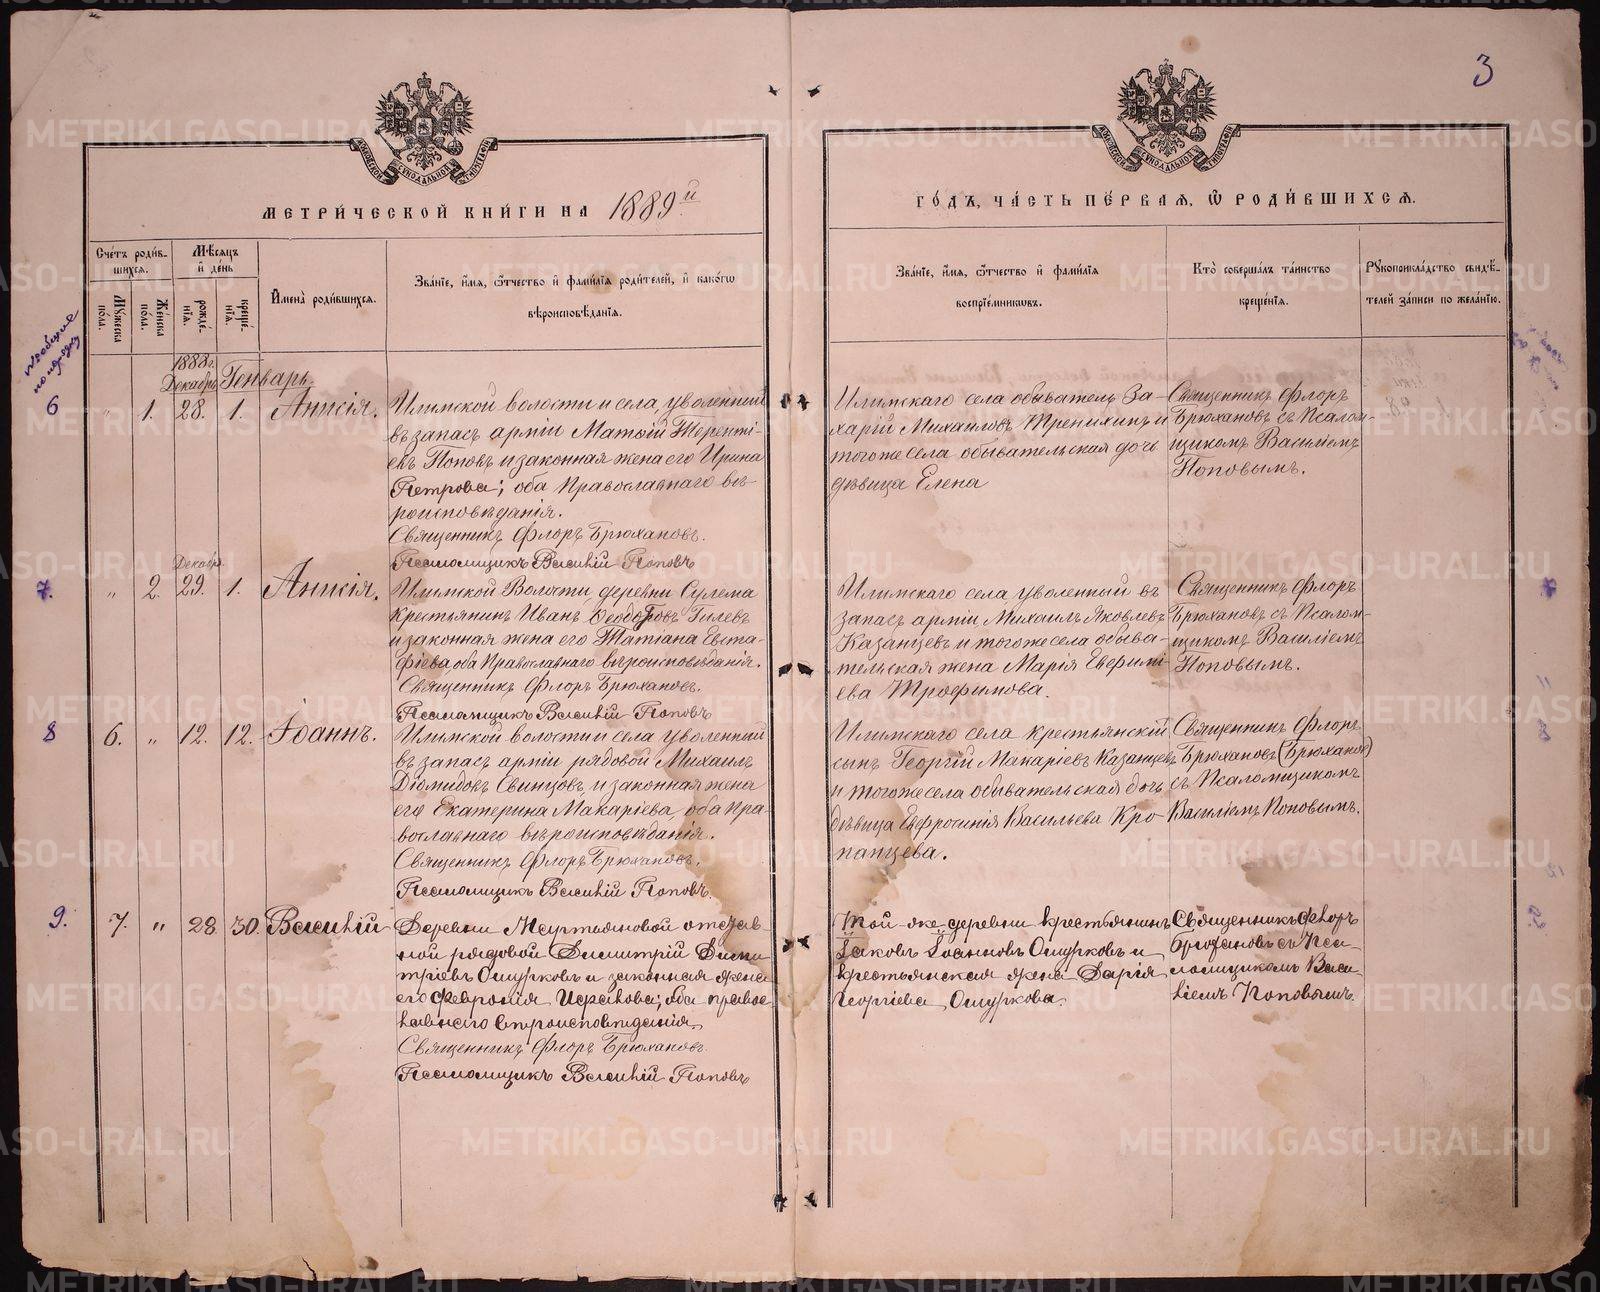 3
МОСКОВСКОЙ СѴНОДАЛЬНОЙ ТИПОГРАФІИ
МОСКОВСКОЙ СѴНОДАЛЬНОЙ ТИПОГРАФІИ
МЕТРИ́ЧЕСКОЙ КНИ́ГИ НА 1889й
ГО́ДЪ, ЧА́СТЬ ПЕ́РВАЯ, Ѽ РОДИ́ВШИХСЯ.
Сче́тъ роди́в-
шихся.
Мѣ́сяцъ
и де́нь
Мꙋ́жеска
пола.
Же́нска
пола.
рожде́-
нїя.
креще́-
нїя.
И҆мена̀ роди́вшихся.
Зва́нїе, и҆́мя, ѻ҆́тчество и҆ фами́лїя роди́телей, и҆ како́гѡ
вѣроисповѣ́данїя.
Зва́нїе, и҆́мя, ѻ҆́тчество и҆ фами́лїя
воспрїе́мникѡвъ.
Кто̀ соверша́лъ та́инство
креще́нїя.
Рꙋкоприкла́дство свидѣ́-
телей за́писи по жела́нїю.
по порядку
1888 г.
Декабрь Генварь
6 " 1. 28. 1. Анисія.
Илимской волости и села, уволенный
въ запасъ арміи Матѳій Терентi-
евъ Поповъ и законная жена его Ирина
Петрова; оба Православнаго вѣ-
роисповѣданія.
Священникъ Флоръ Брюхановъ.
Псаломщикъ Василій Поповъ
Илимскаго села обыватель За-
харій Михаиловъ Тренихинъ и
тогоже села обывательская дочь
дѣвица Елена
Священникъ Флоръ
Брюхановъ съ Псалом-
щикомъ Василіемъ
Поповымъ.
Декабр.
7. " 2. 29. 1. Анисія.
Илимской Волости деревни Сулема
крестьянинъ Иванъ Ѳеодотовъ Гилевъ
и законная жена его Татіана Евста-
фіева оба Православнаго вѣроисповѣданія.
Священникъ Флоръ Брюхановъ.
Псаломщикъ Василій Поповъ
Илимскаго села уволенный въ
запасъ арміи Михаилъ Яковлевъ
Казанцевъ и тогоже села обыва-
тельская жена Марія Евфимі-
ева Трофимова.
Священникъ Флоръ
Брюхановъ съ Псалом-
щикомъ Василіемъ
Поповымъ.
8 6. " 12. 12. Іоаннъ.
Илимской волости и села уволенный
въ запасъ арміи рядовой Михаилъ
Діомидовъ Свинцовъ, и законная жена
его Екатерина Макаріева, оба Пра-
вославнаго вѣроисповѣданія.
Священникъ Флоръ Брюхановъ.
Псаломщикъ Василій Поповъ.
Илимскаго села крестьянскій
сынъ Георгій Макаріевъ Казанцевъ
и тогоже села обывательская дочь
дѣвица Евфросинія Васильева Кро-
панцева.
Священникъ Флоръ
Брюхановъ (Брюханов)
съ Псаломщикомъ
Василіемъ Поповымъ.
9. 7. " 28 30. Василій
Деревни Мартьяновой отстав
ной рядовой Димитрій Дими
тріевъ Ошурковъ и законная жена
его Феврония ; оба право
славнаго вѣроисповѣданія.
Священникъ Флоръ Брюхановъ.
Псаломщикъ Василій Поповъ
Той же деревни крестьянинъ
Іаковъ Іоанновъ Ошурковъ и
крестьянская жена Дарія
Георгіева Ошуркова.
Священникъ Флоръ
Брюхановъ съ Пса-
ломщикомъ Васи
ліемъ Поповымъ.
METRIKI.GASO-URAL.RU